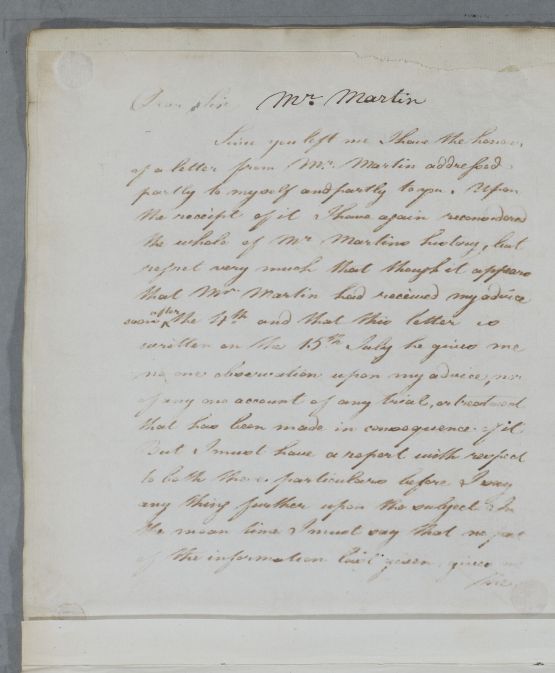 Dear Sir, Mr. Martin
Since you left me I have the honor
of a letter from Mr. Martin addressed
partly to myself and partly to you. Upon
the receipt of it I have again reconsidered
the whole of Mr Martins history, but
regret very much that though it appears
that Mr. Martin had received my advice
soon after the 4th and that this letter is
written on the 15th July he gives me
no one observation upon my advice, nor
of any no account of any trial, or treatment
that has been made in consequence of it
But I must have a report with respect
to both these particulars before I say
any thing further upon the subject. In
the mean time I must say that no part
of the information last given, gives me